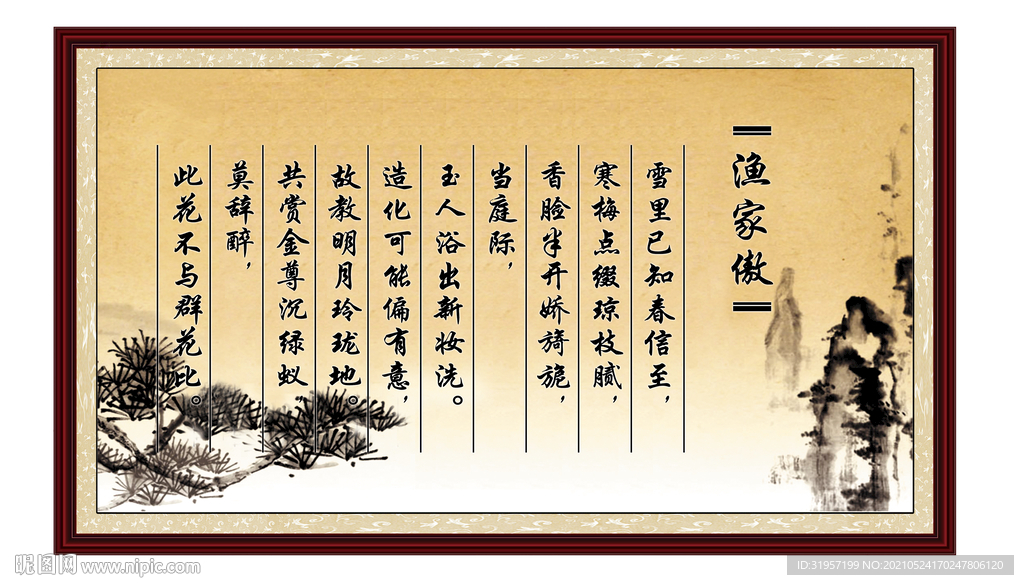 渔家傲
雪里已知春信至，
寒梅点缀琼枝腻，
香脸半开娇旖旎，
当庭际，
玉人浴出新妆洗。
造化可能偏有意，
故教明月玲珑地。
共赏金尊沉绿蚁，
莫辞醉，
此花不与群花比。
昵图网 www.nipic.com
ID:31957199 NO:20210524170247806120